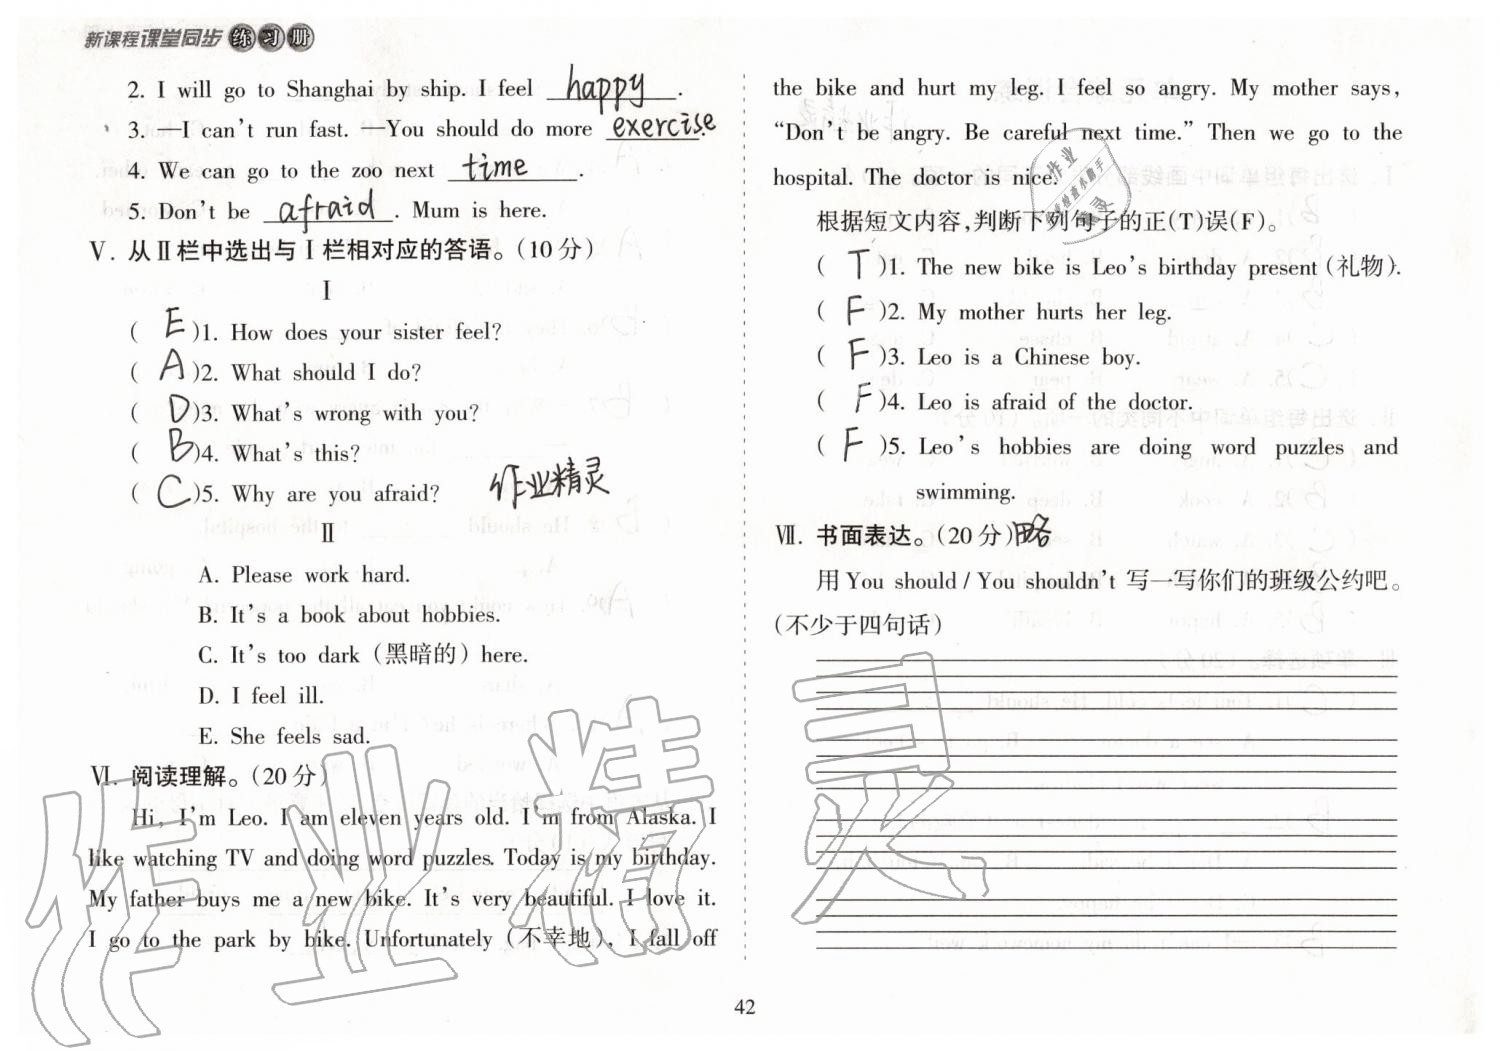 新课程课堂同步练习册
2. I will go to Shanghai by ship. I feel happy.
3. —I can't run fast. —You should do more exercise.
4. We can go to the zoo next time.
5. Don't be afraid. Mum is here.
Ⅴ. 从Ⅱ栏中选出与Ⅰ栏相对应的答语。(10分)
Ⅰ
( E )1. How does your sister feel?
( A )2. What should I do?
( D )3. What's wrong with you?
( B )4. What's this?
( C )5. Why are you afraid?
作业精灵
Ⅱ
A. Please work hard.
B. It's a book about hobbies.
C. It's too dark (黑暗的) here.
D. I feel ill.
E. She feels sad.
Ⅵ. 阅读理解。(20分)
Hi, I'm Leo. I am eleven years old. I'm from Alaska. I
like watching TV and doing word puzzles. Today is my birthday.
My father buys me a new bike. It's very beautiful. I love it.
I go to the park by bike. Unfortunately (不幸地), I fall off
the bike and hurt my leg. I feel so angry. My mother says,
"Don't be angry. Be careful next time." Then we go to the
hospital. The doctor is nice.
根据短文内容,判断下列句子的正(T)误(F)。
( T )1. The new bike is Leo's birthday present (礼物).
( F )2. My mother hurts her leg.
( F )3. Leo is a Chinese boy.
( F )4. Leo is afraid of the doctor.
( F )5. Leo's hobbies are doing word puzzles and
swimming.
Ⅶ. 书面表达。(20分) 略
用 You should / You shouldn't 写一写你们的班级公约吧。
(不少于四句话)
作业精灵
42